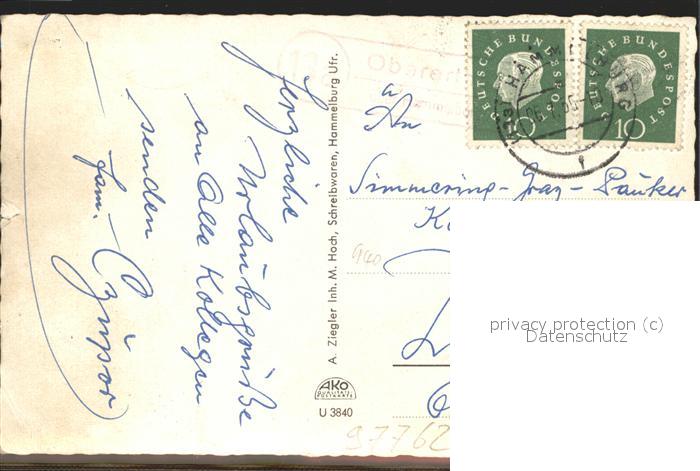 Herzliche
Urlaubsgrüße
an Alle Kollegen
senden
fam.
A. Ziegler Inh. M. Hoch, Schreibwaren, Hammelburg Ufr.
AKO
QUALITÄTS
POSTKARTE
U 3840
DEUTSCHE BUNDESPOST
10
DEUTSCHE BUNDESPOST
10
HAMMELBURG
(13a)
An
Simmering-Graz-Pauker
940
97762
privacy protection (c)
Datenschutz